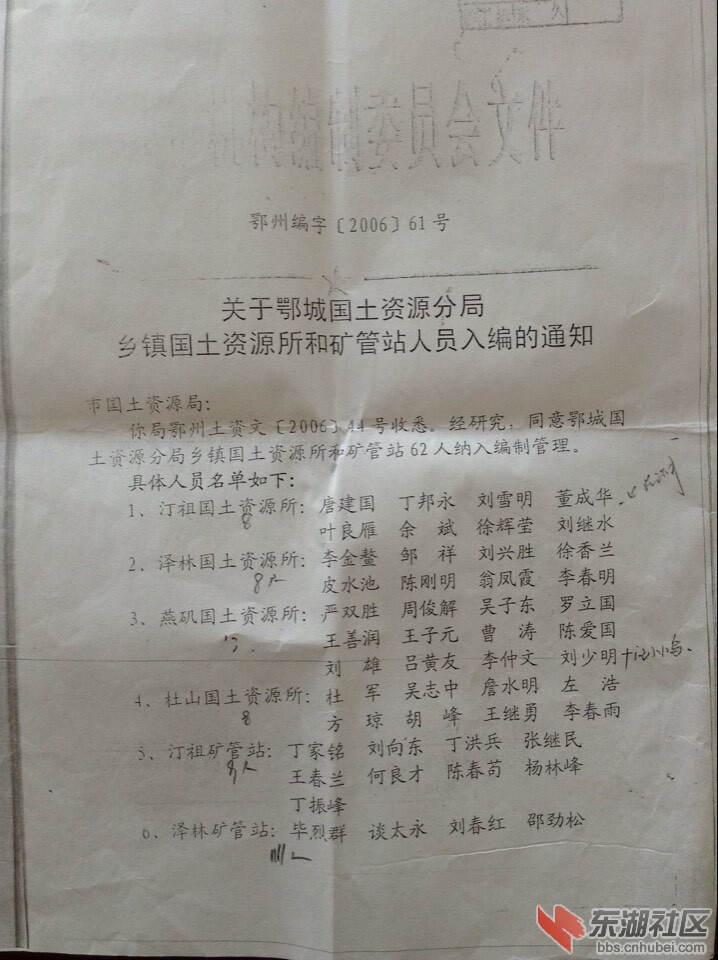 编制委员会文件
鄂州编字〔2006〕61号
关于鄂城国土资源分局
乡镇国土资源所和矿管站人员入编的通知
市国土资源局:
你局鄂州土资文〔2006〕44号收悉。经研究,同意鄂城国
土资源分局乡镇国土资源所和矿管站62人纳入编制管理。
具体人员名单如下:
1、汀祖国土资源所:唐建国 丁邦永 刘雪明 董成华
叶良雁 余斌 徐辉莹 刘继水
8
2、泽林国土资源所:李金鳌 邹祥 刘兴胜 徐香兰
8人 皮水池 陈刚明 翁凤霞 李春明
3、燕矶国土资源所:严双胜 周俊解 吴子东 罗立国
王善润 王子元 曹涛 陈爱国
刘雄 吕黄友 李仲文 刘少明
4、杜山国土资源所:杜军 吴志中 詹水明 左浩
8 方琼 胡峰 王继勇 李春雨
5、汀祖矿管站:丁家铭 刘向东 丁洪兵 张继民
王春兰 何良才 陈春苟 杨林峰
丁振峰
6、泽林矿管站:毕烈群 谈太永 刘春红 邵劲松
东湖社区
bbs.cnhubei.com